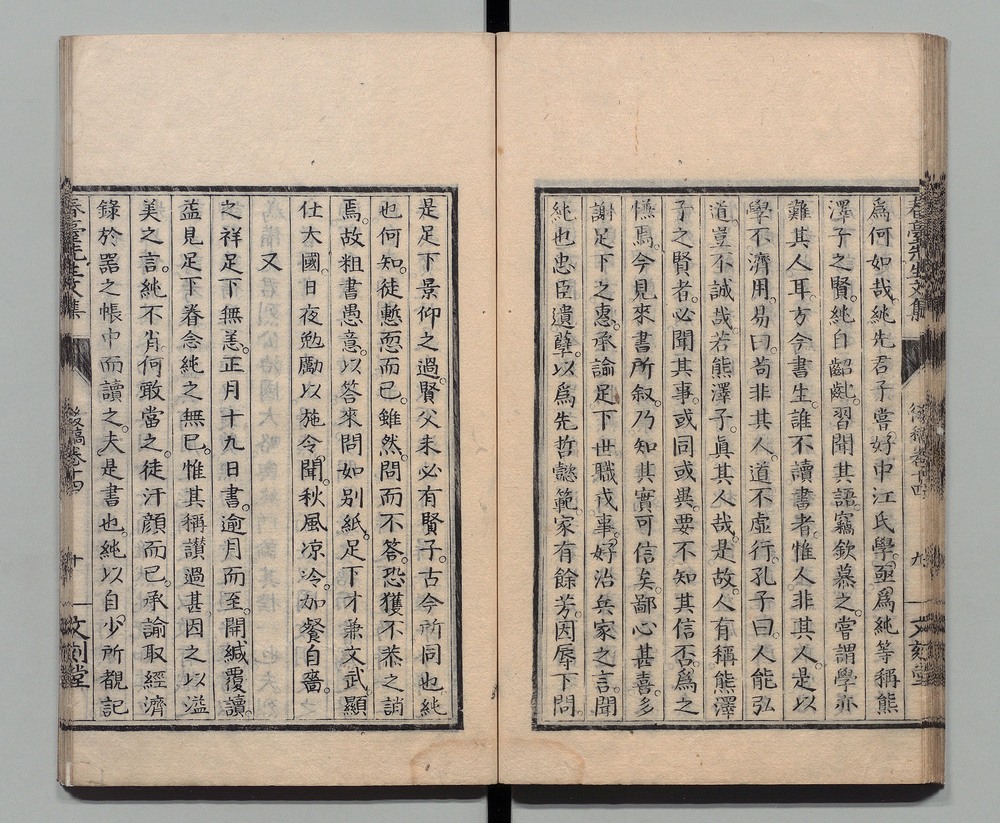 春臺先生文集
後稿卷十四
九
文刻堂
爲何如哉。純先君子嘗好中江氏學。亟爲純等稱熊
澤子之賢。純自齠齔。習聞其語。竊欽慕之。嘗謂學亦
難其人耳。方今書生。誰不讀書者。惟人非其人。是以
學不濟用。易曰。苟非其人。道不虛行。孔子曰。人能弘
道。豈不誠哉。若熊澤子。眞其人哉。是故。人有稱熊澤
子之賢者。必聞其事。或同或異。要不知其信否。爲之
憮焉。今見來書所叙。乃知其實可信矣。鄙心甚喜。多
謝足下之惠。承諭足下世職戎事。好治兵家之言。聞
純也忠臣遺孽。以爲先哲懿範。家有餘芳。因辱下問。
是足下景仰之過。賢父未必有賢子。古今所同也。純
也何知。徒慙恧而已。雖然。問而不答。恐獲不恭之誚
焉。故粗書愚意。以答來問如别紙。足下才兼文武。顯
仕大國。日夜勉勵。以施令聞。秋風凉冷。加餐自嗇。
又
之祥足下無恙。正月十九日書。逾月而至。開緘覆讀。
益見足下眷念純之無已。惟其稱讃過甚。因之以溢
美之言。純不肖何敢當之。徒汗顏而已。承諭取經濟
錄於器之帳中而讀之。夫是書也。純以自少所覩記
春臺先生文集
後稿卷十四
十
文刻堂